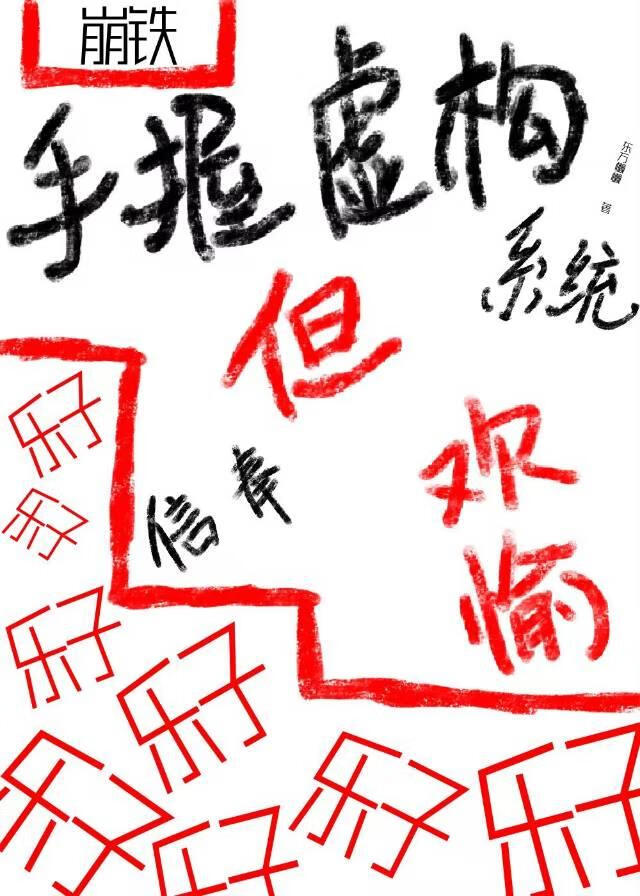 崩铁
手握虚构
系统
但
信奉
欢愉
东方曦曦 著
乐子
乐子
乐子
乐子
乐子
乐子
乐子
乐子